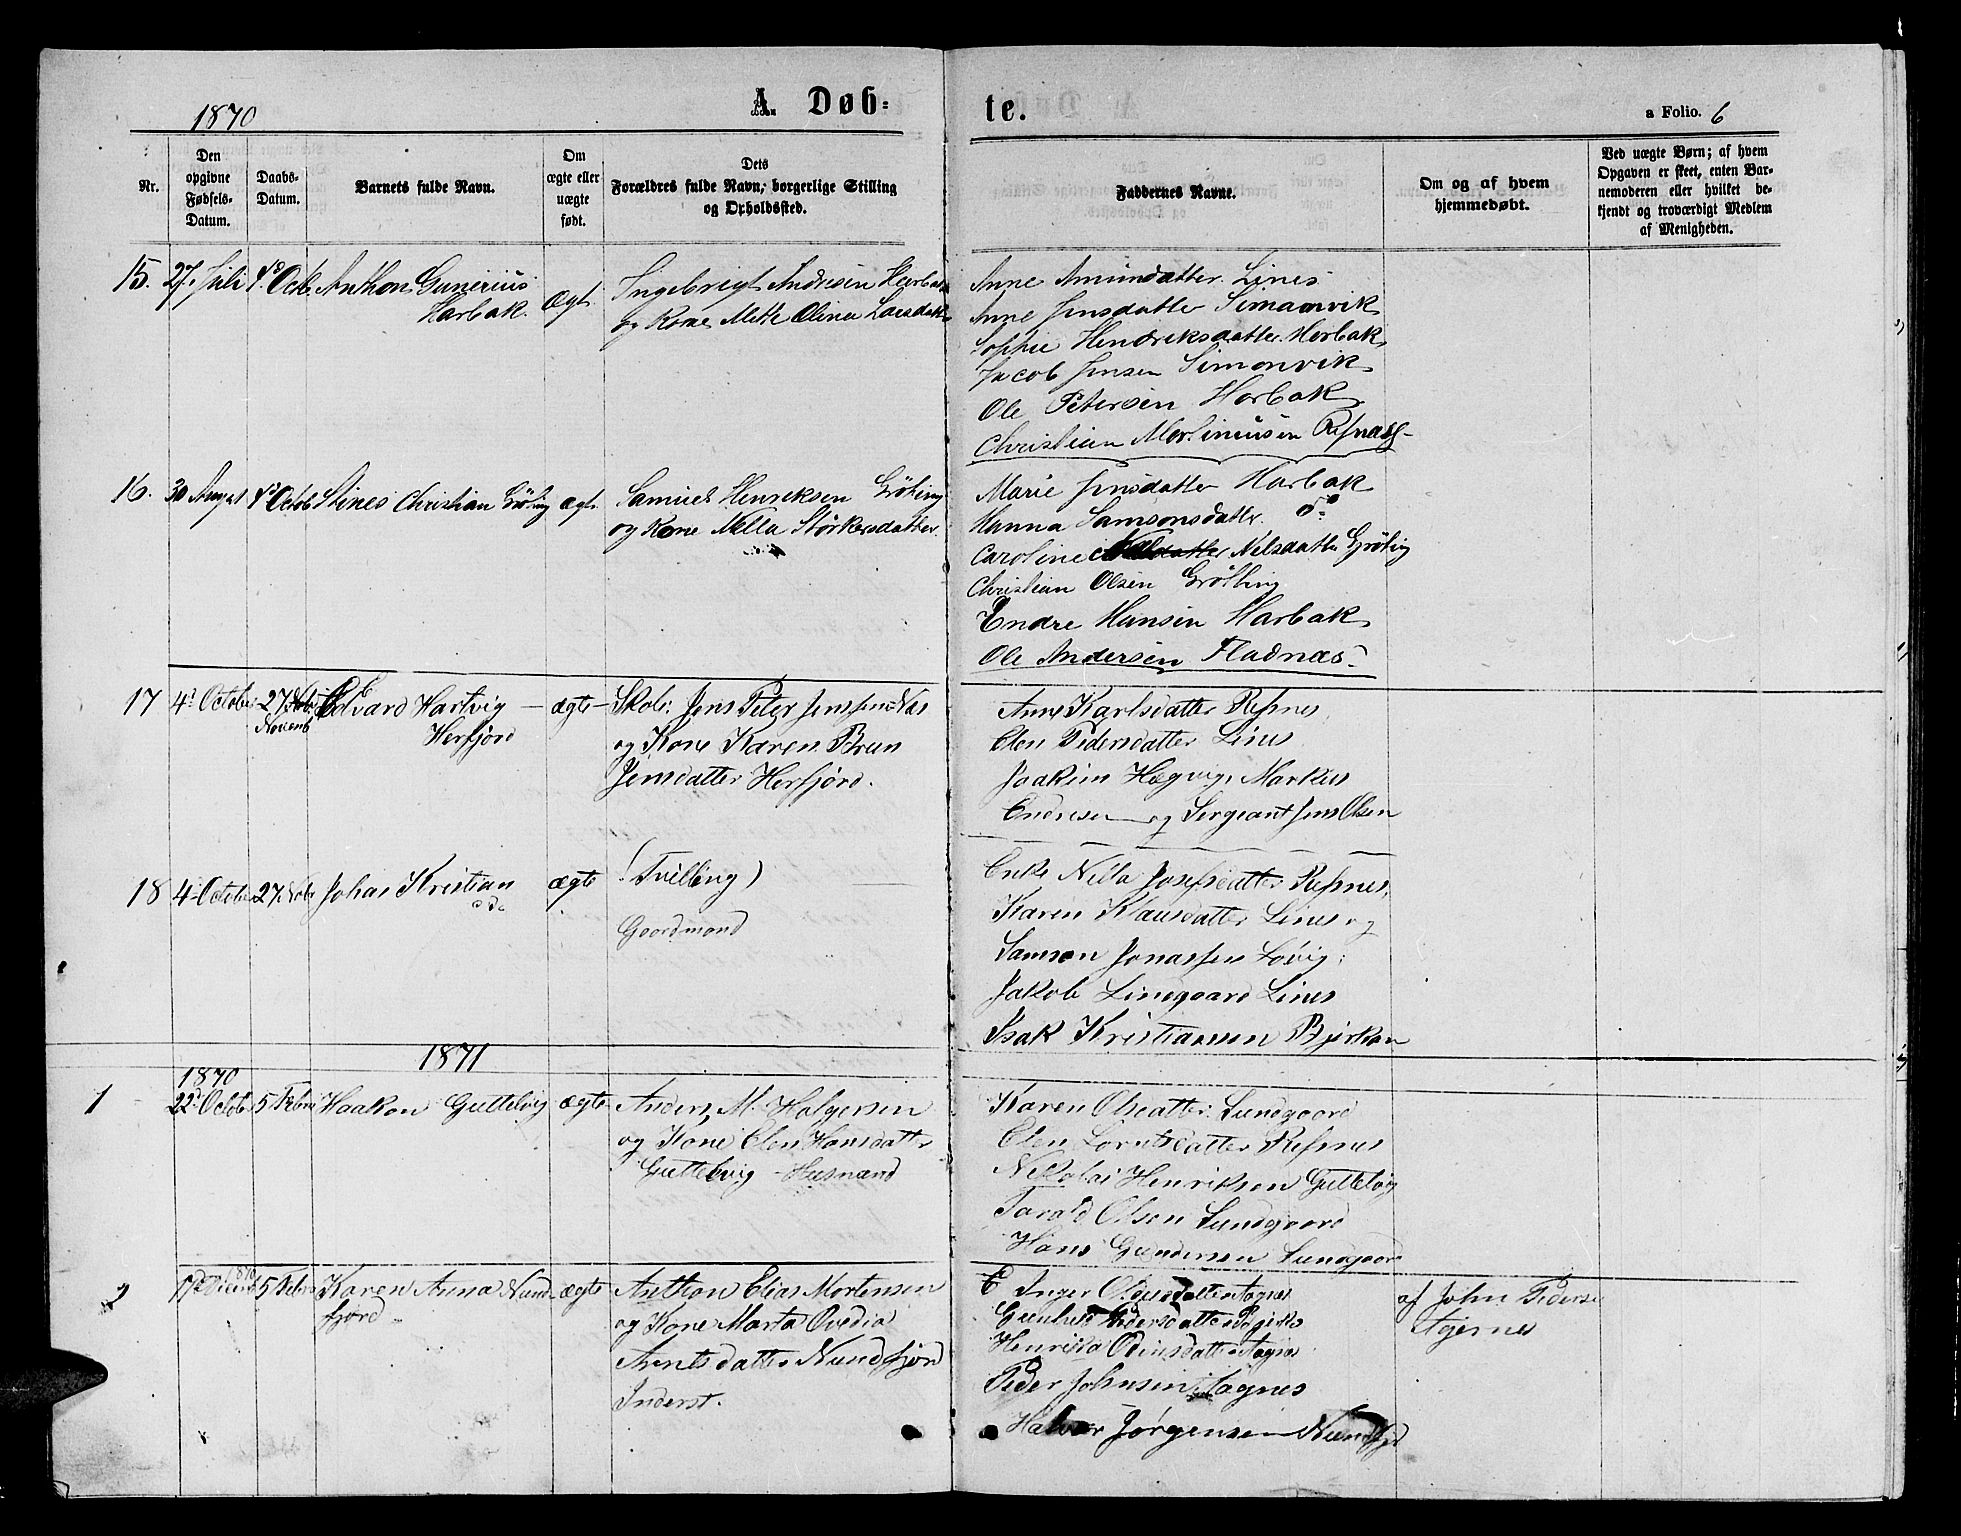 1870
A. Døb=
te.
a Folio. 6
Nr.
Den opgivne Fødsels-Datum.
Daabs-Datum.
Barnets fulde Navn.
Om ægte eller uægte født.
Dets Forældres fulde Navn, borgerlige Stilling og Opholdssted.
Faddernes Navne.
Om og af hvem hjemmedøbt.
Ved uægte Børn; af hvem Opgaven er skeet, enten Barnemoderen eller hvilket bekjendt og troværdigt Medlem af Menigheden.
15. 27. Juli Octb. Anthon Gunerius
Harbak.
Ægt.
Ingebrigt Andresen Harbak
og Kone Mette Olina Larsdatt.
Anne Amundatter Lines
Anne Jensdatter Simaanvik
Sophie Hendriksdatter Horbak,
Jacob Jensen Simonvik
Ole Petersen Horbak
Christian Martinusen Refnæs
16. 30 August Octob Stines Christian Gröting ægt.
Samuel Henriksen Gröting
og Kone Nella Störkersdatter.
Marie Jensdatter Harbak
Hanna Samsonsdatter. do
Caroline Nelsdatter Gröting
Christian Olsen Grötting
Endre Hansen Harbak
Ole Andersen Fladnæs.
17 4. Octobr 27
Novemb
Edvard Hartvig
Herfjord
ægte
Skol: Jens Peter Jenssen Næs
og Kone Karen Brun
Jensdatter Herfjord.
Anne Karlsdatter Resnes,
Elen Pedersdatter Lines
Joakim Hægvig, Markus
Endresen og Sergeant Jens Olsen
18 4 Octobr 27 Nobr Johas Kristian
do
ægte
(Tvilling)
Gaardmand
Enke Nella Josefsdatter Resnes,
Karen Klausdatter Lines og
Samson Jonassen Lövig,
Jakob Linegaard Lines
Isak Kristiansen Bjerkan
1871
1870
1 22. Octob 5 Febru Haakon Guttelvig ægte
Anders M. Holgersen
og Kone Elen Hansdatter
Guttelvig - Husmand
Karen Olsdatter Sundgaard
Elen Lorntsdatter Resnes
Nikolai Henriksen Guttelvig
Tarald Olsen Sundgaard
Hans Gundersen Sundgaard
1870
2 17 Decemb 5 Febru Karen Anna Nund
fjord
ægte
Anthon Elias Mortensen
og Kone Marta Ovedia
Arntsdatter Nundfjord
Inderst.
E Inger Odinsdatter Tagnes
Gunhild Pedersdatter
Henrika Odinsdatter Tagnes
Peder Johnsen Tagnes
Halvor Jørgensen Nundfjd
af John Peders
Agernes